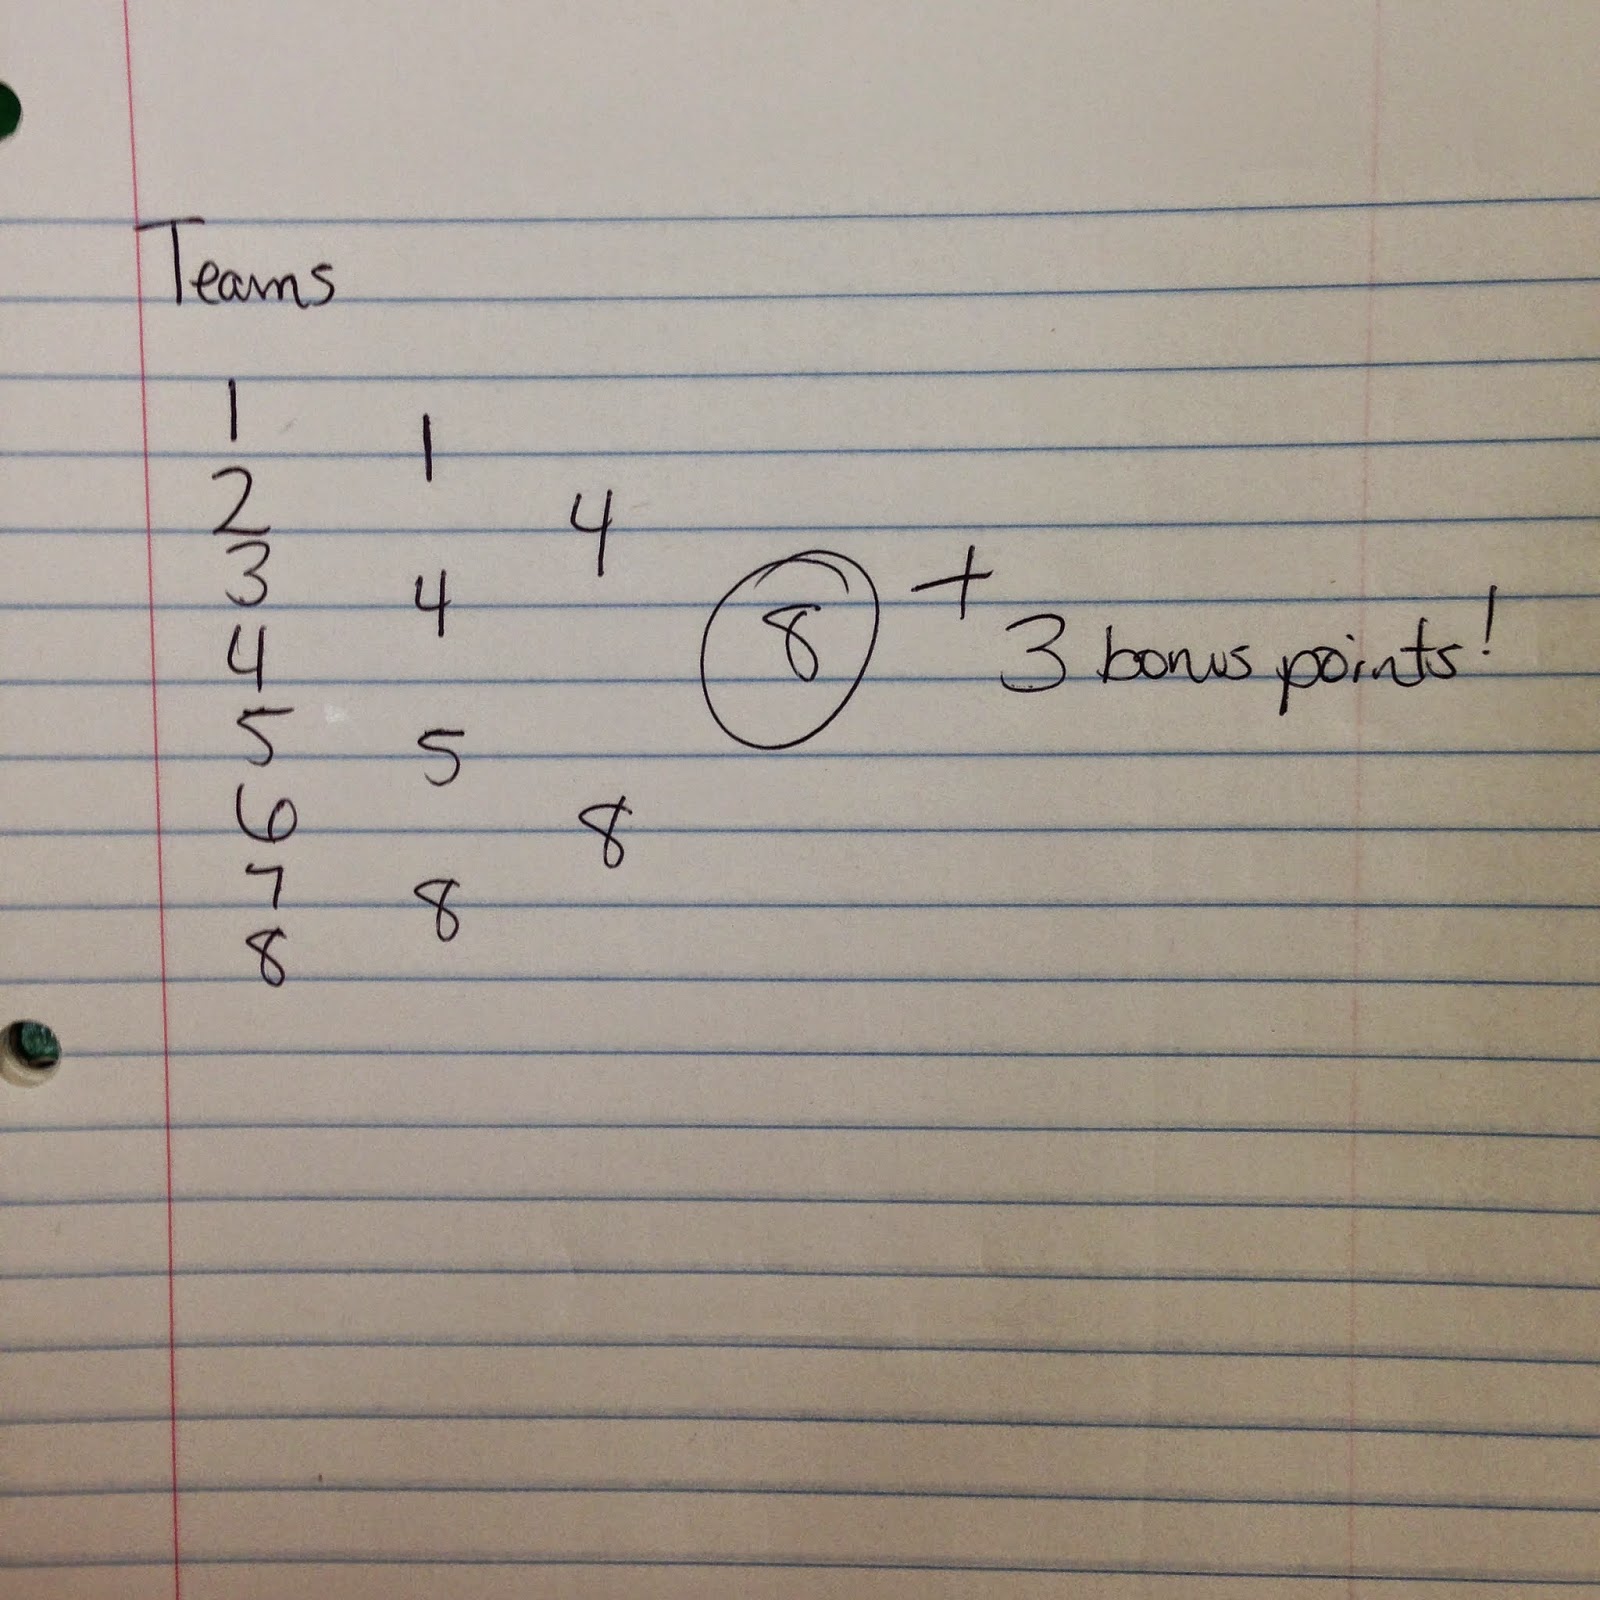 Teams
1
1
2
4
3
4
8 + 3 bonus points!
4
5
5
6
8
7
8
8